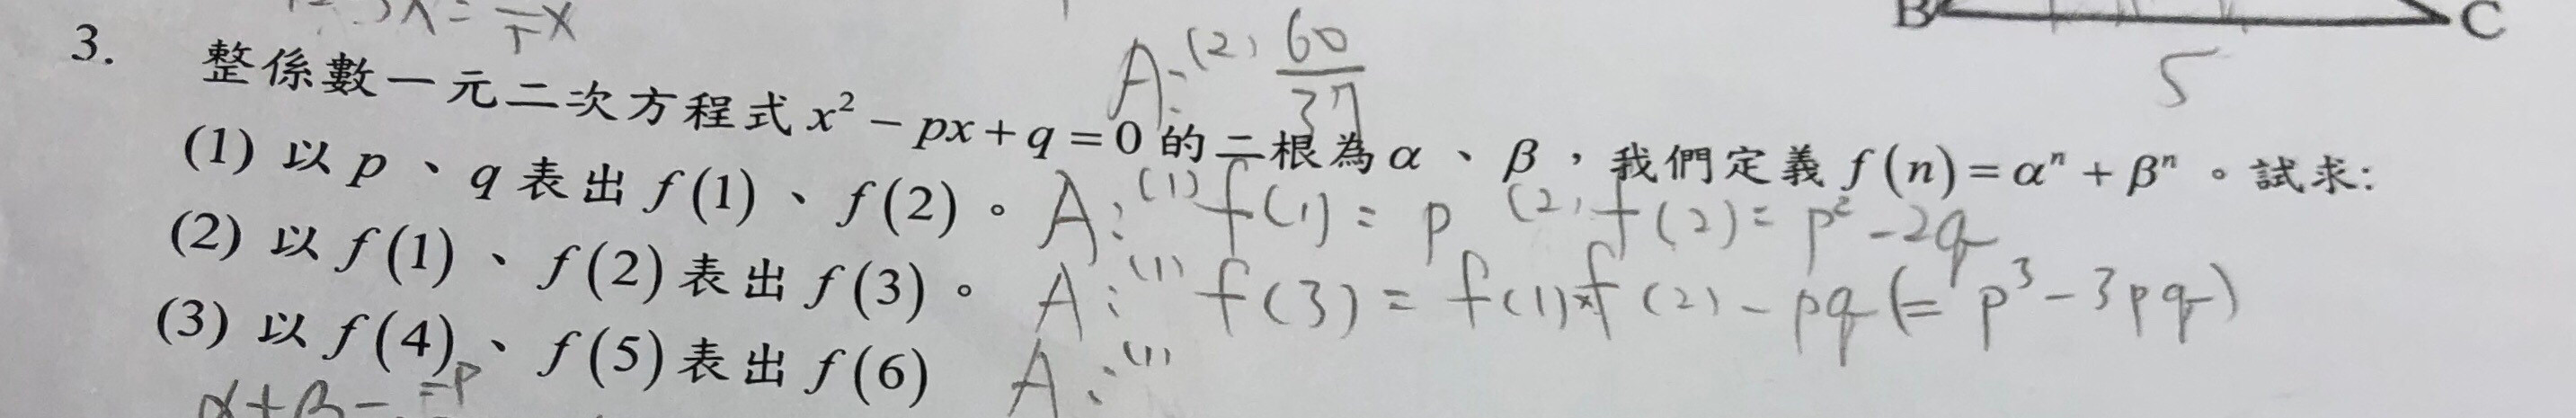 B C
5
A:(2) 60/37
3. 整係數一元二次方程式 x² − px + q = 0 的二根為 α 、 β ，我們定義 f(n) = αⁿ + βⁿ 。試求:
(1) 以 p 、 q 表出 f(1) 、 f(2) 。 A:(1) f(1) = p (2) f(2) = p² − 2q
(2) 以 f(1) 、 f(2) 表出 f(3) 。 A:(1) f(3) = f(1)×f(2) − pq (= p³ − 3pq)
(3) 以 f(4) 、 f(5) 表出 f(6) A:(1)
α + β = = p